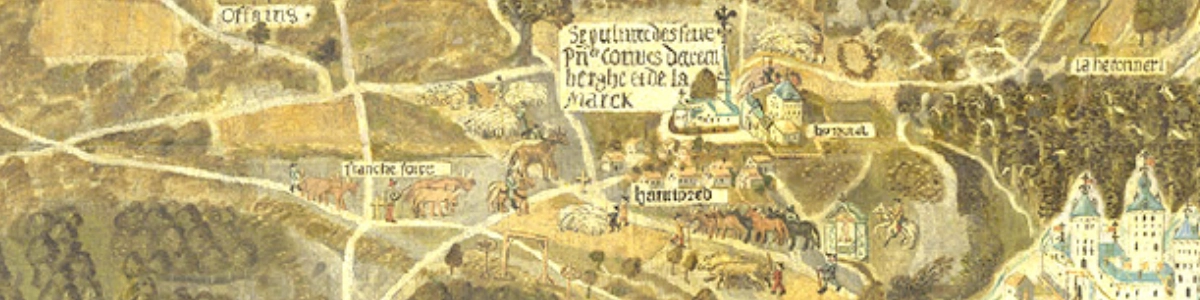 offaing
Sepulture des feue
Pn̄ce Comtes daren
berghe et de la
Marck
la heronneri
franche foire
hantpred